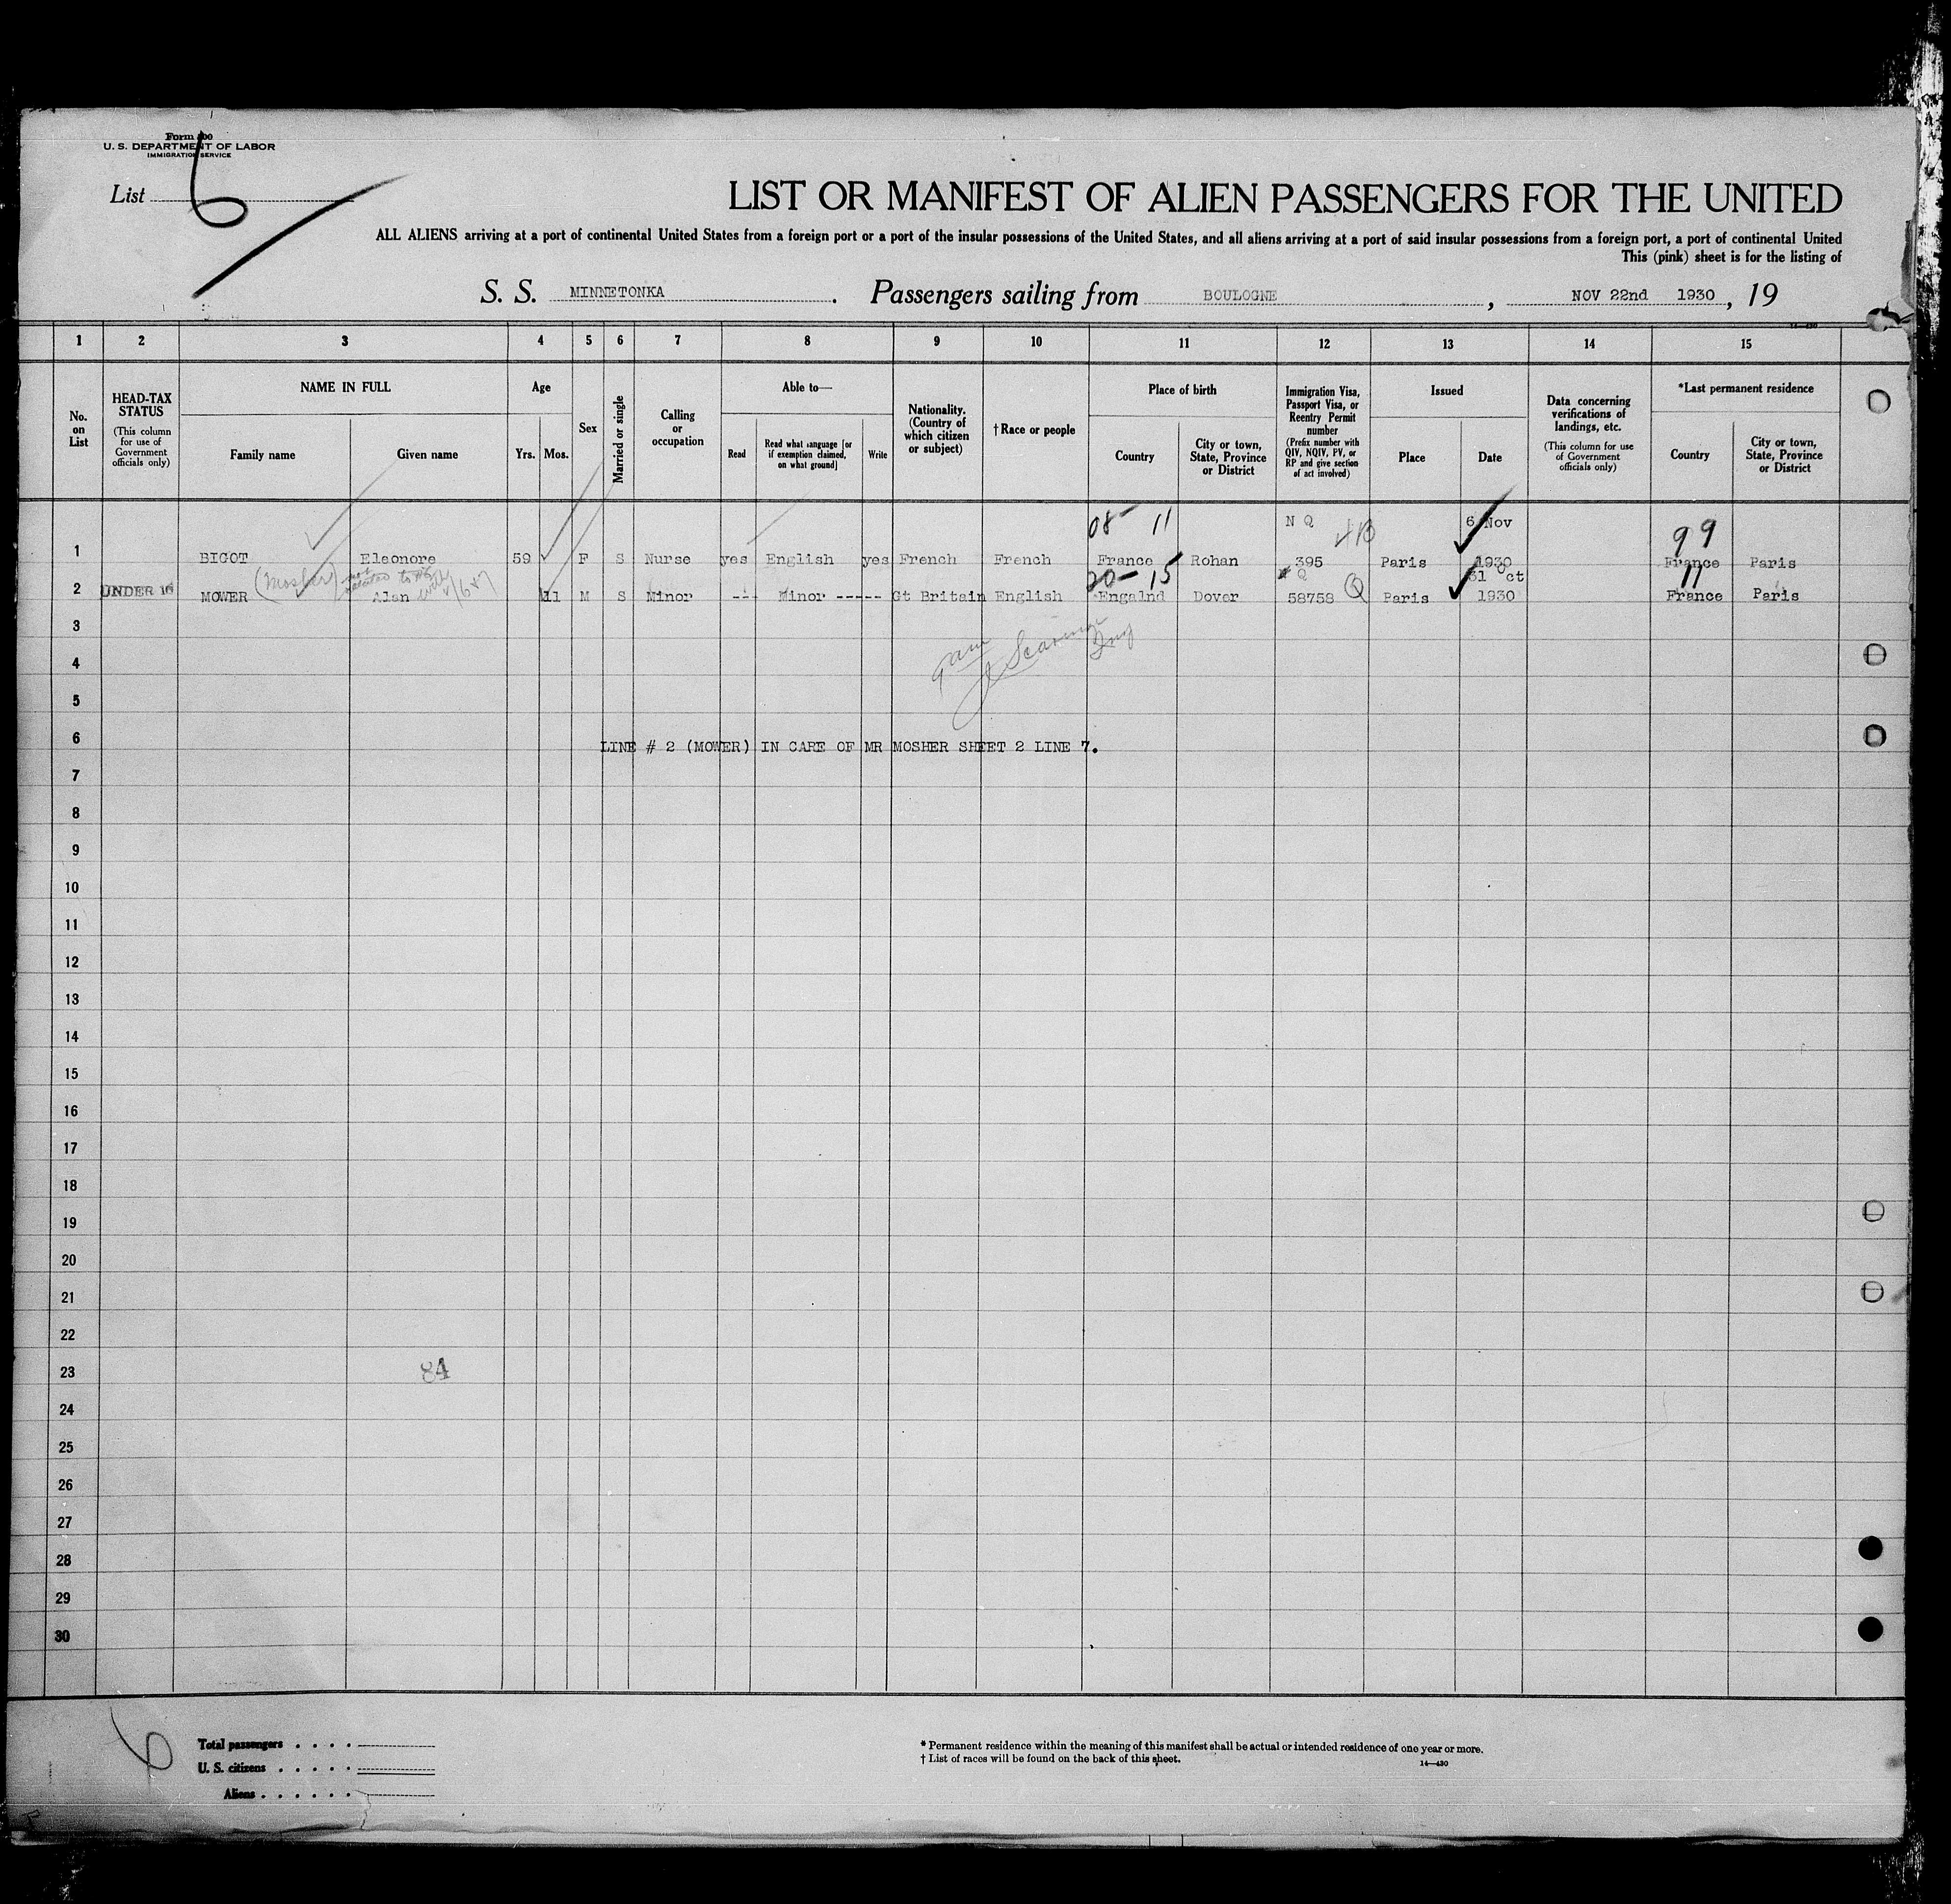 Form 500
U. S. DEPARTMENT OF LABOR
IMMIGRATION SERVICE
List 6
LIST OR MANIFEST OF ALIEN PASSENGERS FOR THE UNITED
ALL ALIENS arriving at a port of continental United States from a foreign port or a port of the insular possessions of the United States, and all aliens arriving at a port of said insular possessions from a foreign port, a port of continental United
This (pink) sheet is for the listing of
S. S. MINNETONKA. Passengers sailing from BOULOGNE, NOV 22nd 1930, 19
14—430
1 2 3 4 5 6 7 8 9 10 11 12 13 14 15
No. on List
HEAD-TAX STATUS
(This column for use of Government officials only)
NAME IN FULL
Family name
Given name
Age
Yrs. Mos.
Sex
Married or single
Calling or occupation
Able to—
Read
Read what language [or if exemption claimed, on what ground]
Write
Nationality. (Country of which citizen or subject)
†Race or people
Place of birth
Country
City or town, State, Province or District
Immigration Visa, Passport Visa, or Reentry Permit number
(Prefix number with QIV, NQIV, PV, or RP and give section of act involved)
Issued
Place
Date
Data concerning verifications of landings, etc.
(This column for use of Government officials only)
*Last permanent residence
Country
City or town, State, Province or District
08 11 N Q 4B 6 Nov 99
1 BIGOT Eleonore 59 F S Nurse yes English yes French French France Rohan 395 Paris 1930 France Paris
(Mosher) not related to #6 20-15 Q 31 Oct 11
2 UNDER 16 MOWER Alan 11 M S Minor --- Minor ----- Gt Britain English Engalnd Dover 58758 Q Paris 1930 France Paris
3
4
5
6 LINE # 2 (MOWER) IN CARE OF MR MOSHER SHEET 2 LINE 7.
7
8
9
10
11
12
13
14
15
16
17
18
19
20
21
22
23 84
24
25
26
27
28
29
30
6
Total passengers
U. S. citizens
Aliens
* Permanent residence within the meaning of this manifest shall be actual or intended residence of one year or more.
† List of races will be found on the back of this sheet.
14—430